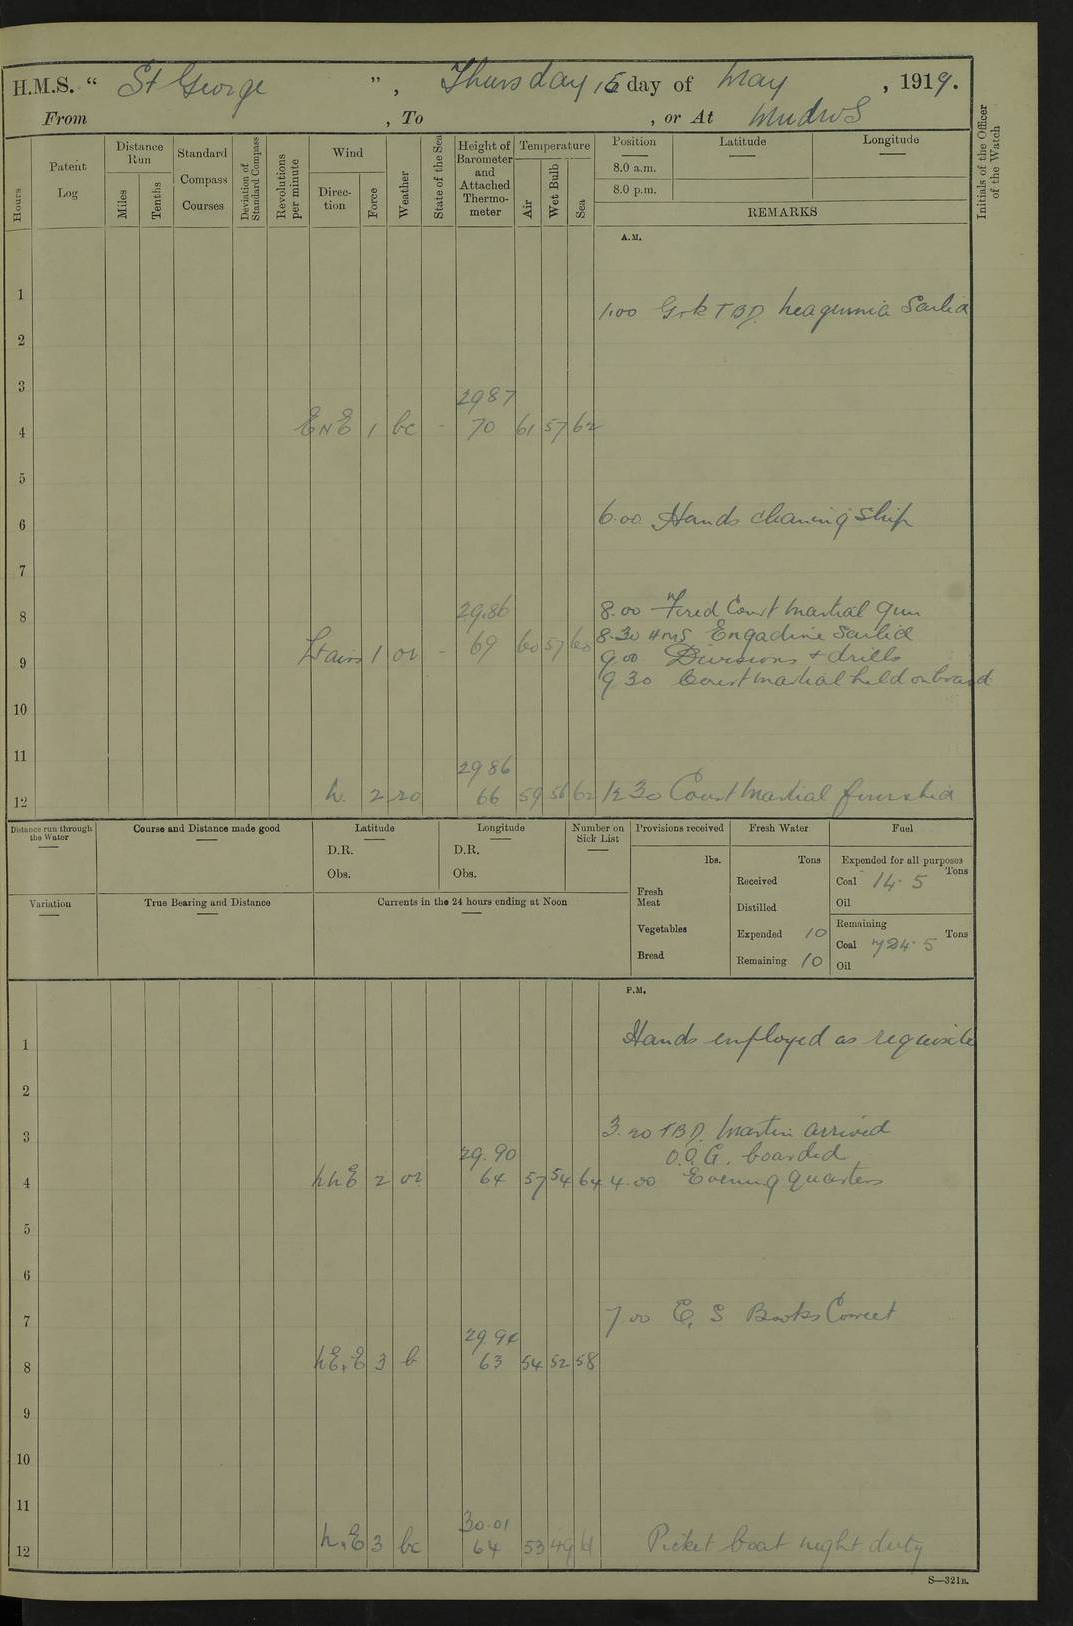 H.M.S. “ St George ” , Thursday 15 day of May , 1919.
From , To , or At Mudros
Hours
Patent Log
Distance Run
Miles
Tenths
Standard Compass Courses
Deviation of Standard Compass
Revolutions per minute
Wind
Direction
Force
Weather
State of the Sea
Height of Barometer and Attached Thermometer
Temperature
Air
Wet Bulb
Sea
Position
8.0 a.m.
8.0 p.m.
Latitude
Longitude
REMARKS
Initials of the Officer of the Watch
A.M.
1
1.00 Grk TBD. Sailed
2
3
2987
4 ENE 1 bc - 70 61 57 62
5
6 6.00 Hands cleaning Ship
7
8 29.86 8.00 Fired Court Martial Gun
8.30 HMS Engadine Sailed
9 Lt airs 1 or - 69 60 57 60 9.00 Divisions & drills
9 30 Court Martial held on board
10
11
2986
12 N. 2 66 59 56 62 12 30 Court Martial finished
Distance run through the Water
Course and Distance made good
Latitude
D.R.
Obs.
Longitude
D.R.
Obs.
Number on Sick List
Provisions received
lbs.
Fresh Meat
Vegetables
Bread
Fresh Water
Tons
Received
Distilled
Expended 10
Remaining 10
Fuel
Expended for all purposes
Tons
Coal 14.5
Oil
Remaining
Tons
Coal 724.5
Oil
Variation
True Bearing and Distance
Currents in the 24 hours ending at Noon
P.M.
1 Hands employed as requisite
2
3 3.20 TBD. Martin arrived
29.90 O.O.G. boarded
4 NNE 2 or 64 57 54 64 4.00 Evening quarters
5
6
7 7.00 E. S Books Correct
29.94
8 NE.E 3 b 63 54 52 58
9
10
11
30.01
12 N.E 3 bc 64 53 49 61 Picket boat night duty
S—321B.